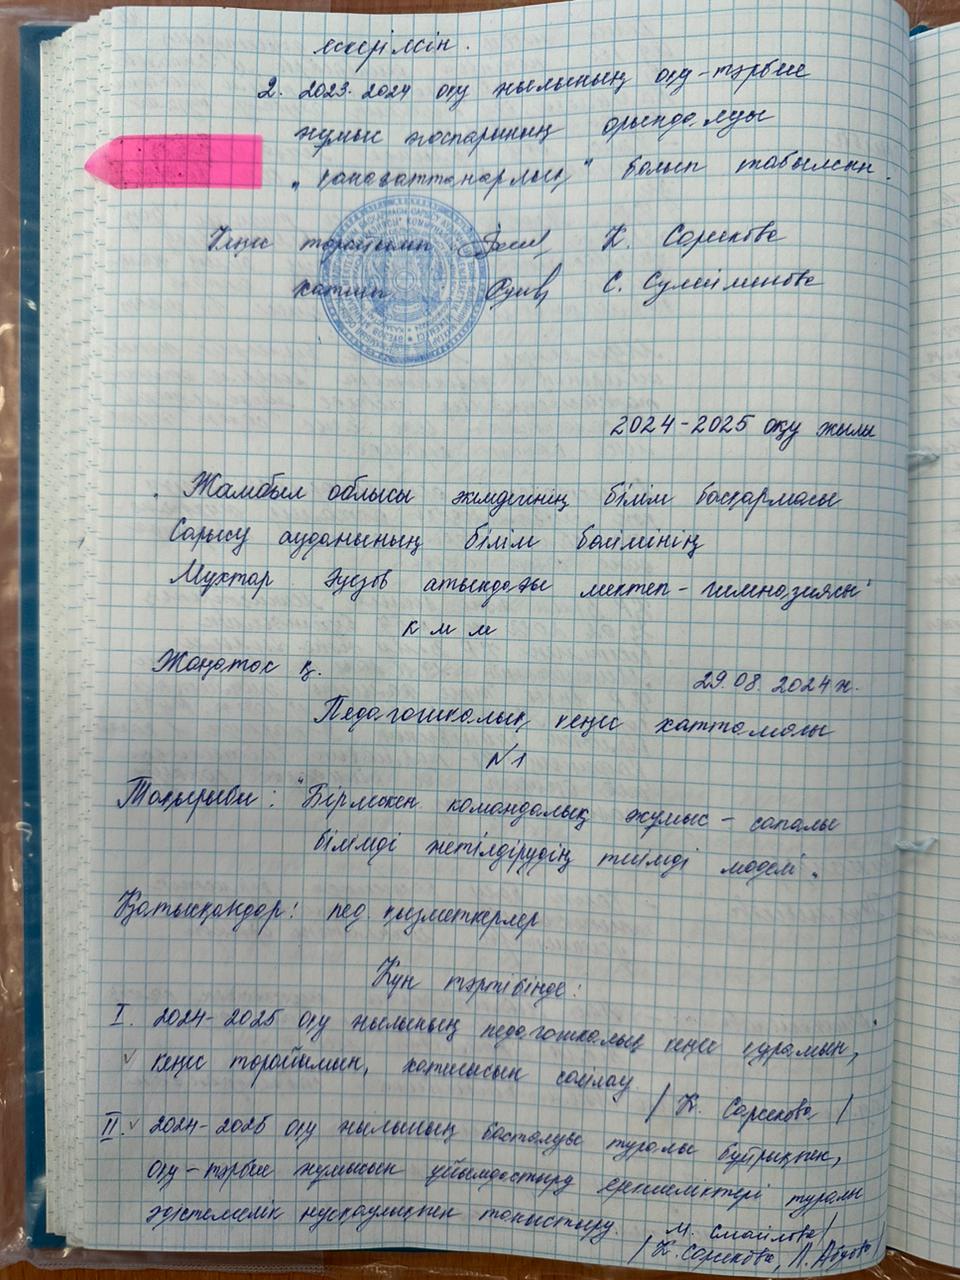 ескерілсін.
2. 2023-2024 оқу жылының оқу-тәрбие
жұмыс жоспарының орындалуы
„қанағаттанарлық" болып табылсын.
Кеңес төрайымы К. Сарсекова
хатшы С. Сулейменова
2024-2025 оқу жылы
Жамбыл облысы әкімдігінің білім басқармасы
Сарысу ауданының білім бөлімінің
Мұхтар Әуезов атындағы мектеп-гимназиясы"
КММ
Жаңатас қ. 29.08.2024 ж.
Педагогикалық кеңес хаттамасы
№1
Тақырыбы: "Бірлескен командалық жұмыс - сапалы
білімді жетілдірудің тиімді моделі"
Қатысқандар: пед. қызметкерлер
Күн тәртібінде:
I. 2024-2025 оқу жылының педагогикалық кеңес құрамын,
кеңес төрайымын, хатшысын сайлау
/ К. Сарсекова /
II. 2024-2025 оқу жылының басталуы туралы бұйрықпен,
оқу-тәрбие жұмысын ұйымдастыру ерекшеліктері туралы
әдістемелік нұсқаулықпен таныстыру.
М. Смаилова/
/К. Сарсекова, Л. Абуова/